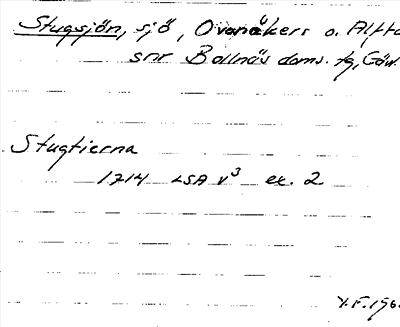 Stugsjön, sjö, Ovanåkers o. Alfta
snr Bollnäs doms. tg, Gävl.
Stugtierna
1714 LSA V³ ex. 2
Y.F. 196